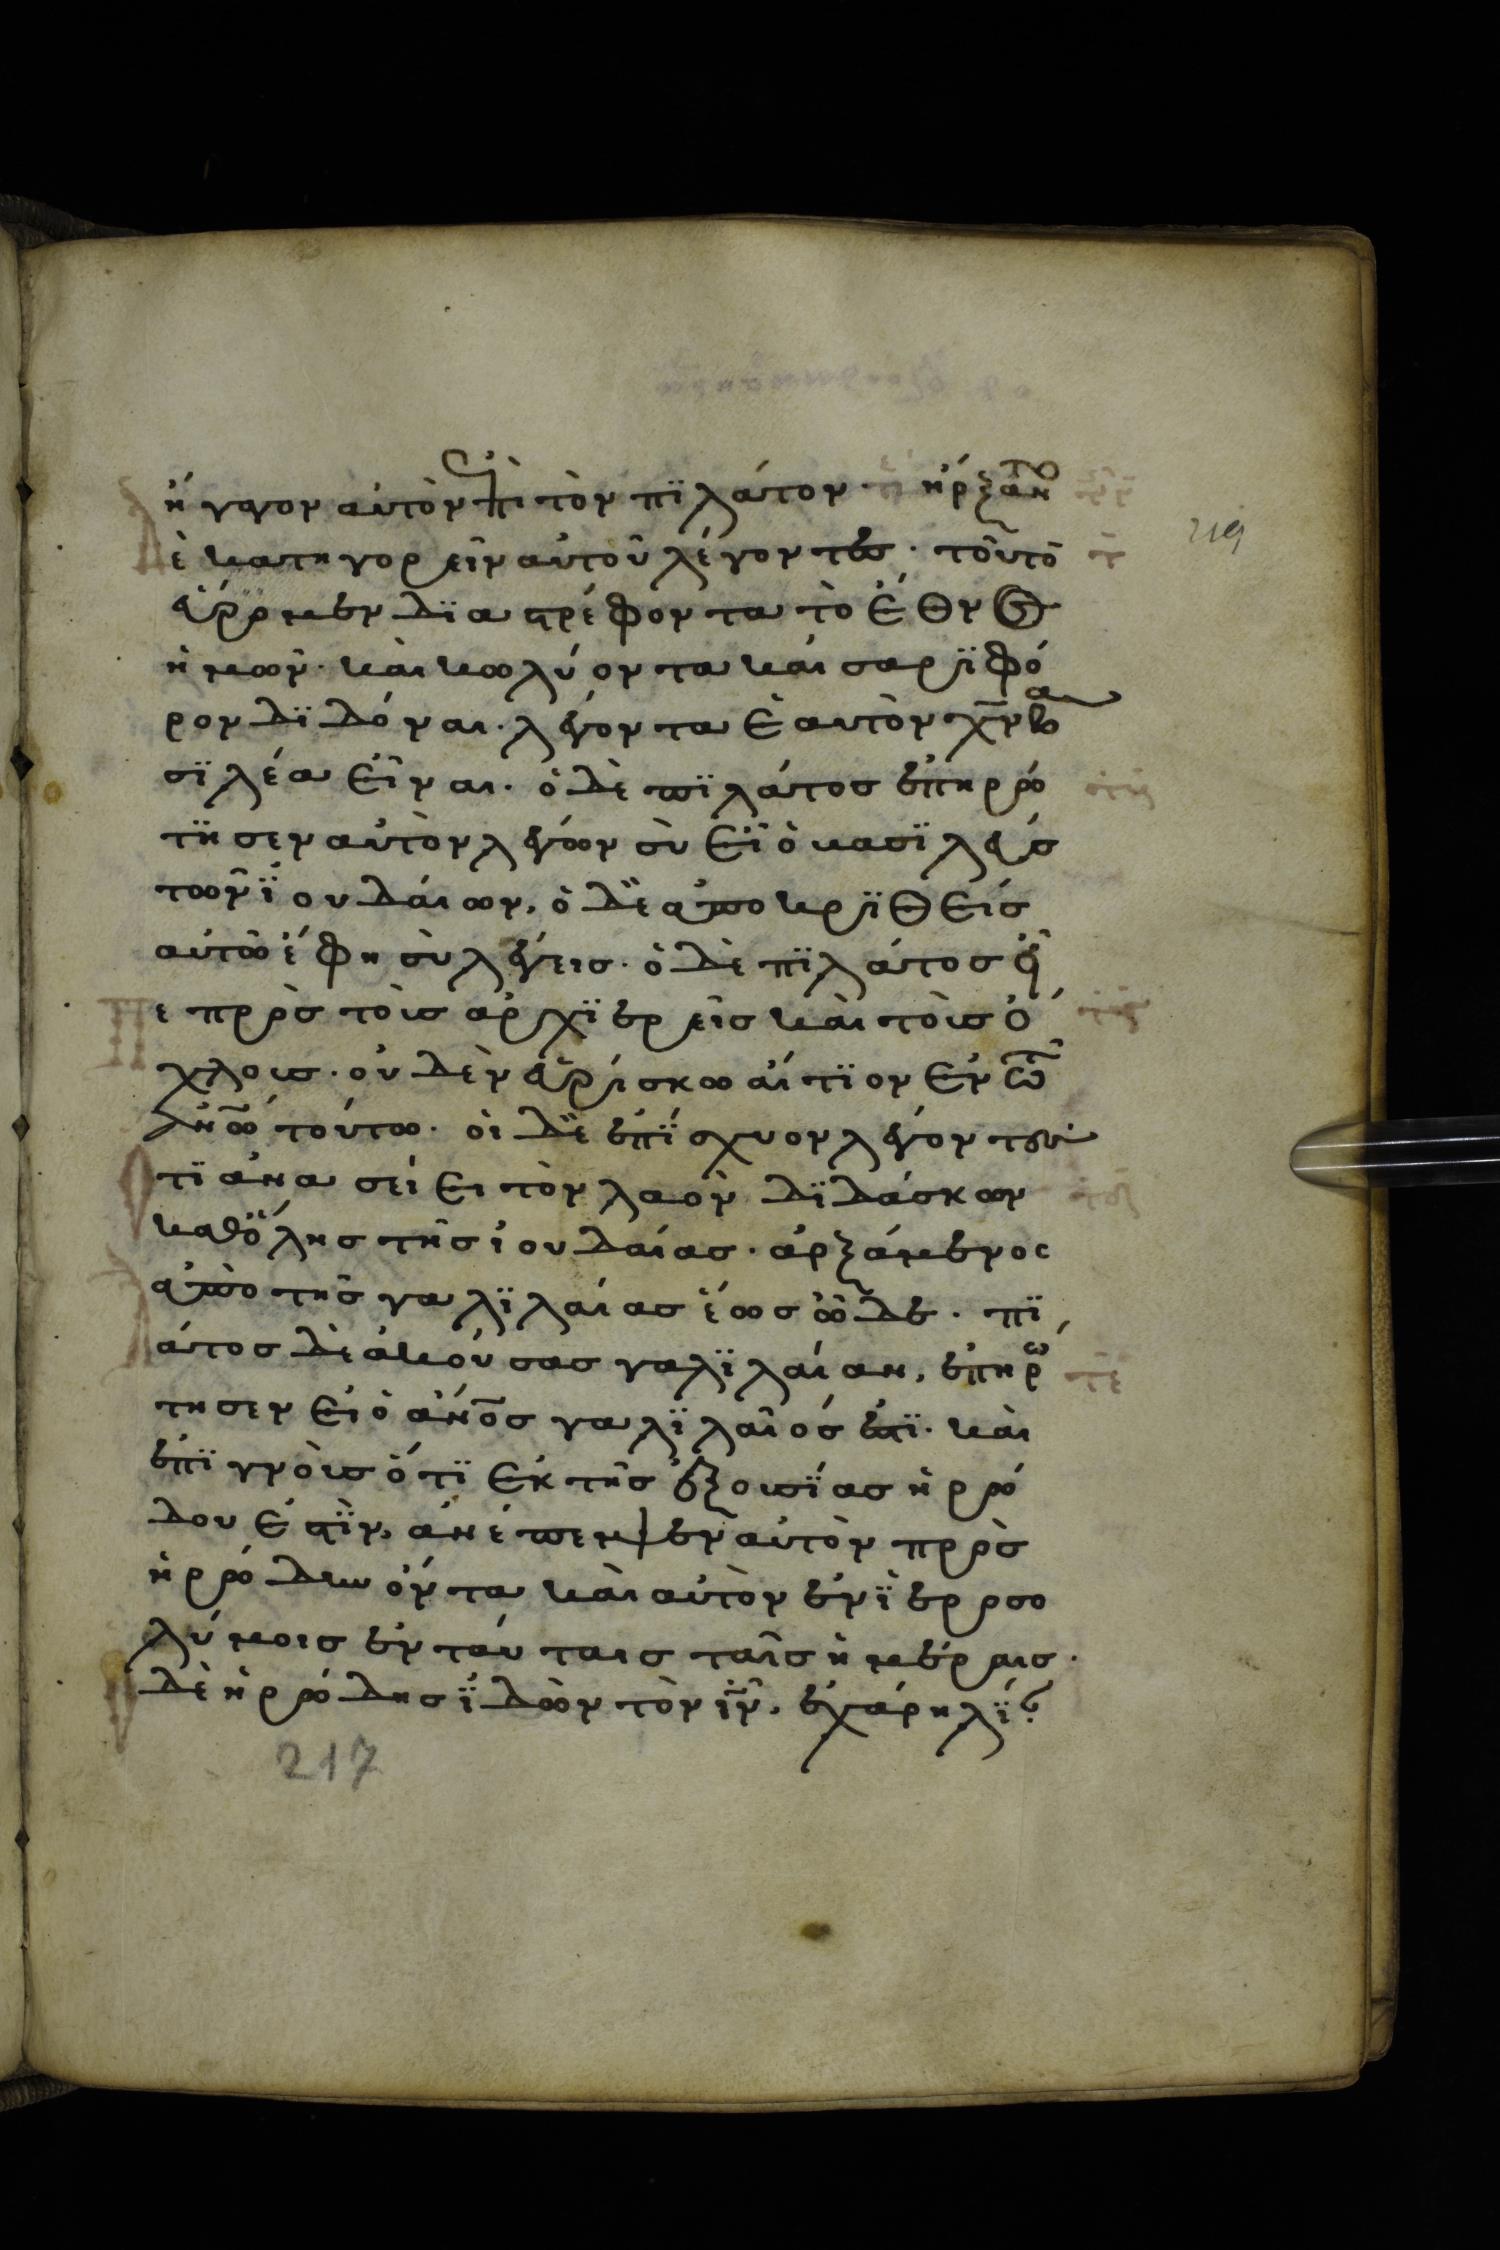 ἤγαγον αὐτὸν ἐπὶ τὸν πϊλάτον· ἤρξαντο
ὲ κατηγορεῖν αὐτοῦ λέγοντες· τοῦτο
εὕρομεν δϊαστρέφοντα τὸ ἔθνος
ἡμῶν· καὶ κωλύοντα καίσαρϊ φό
ρον δϊδόναι· λέγοντα ἑαυτὸν χν̅ βα
σϊλέα εἶναι· ὁ δὲ πϊλάτος ἐπηρώ
τησεν αὐτὸν λέγων σὺ εἶ ὁ βασϊλεύς
τῶν ϊουδάιων, ὁ δὲ ἀποκρϊθείς
αὐτῶ ἔφη σὺ λέγεις· ὁ δὲ πϊλάτος εἶ
ε πρὸς τοὺς ἀρχϊερεῖς καὶ τοὺς ὄ
χλους· οὐδὲν εὑρίσκω αἴτϊον ἐν τῶ
ἀνω̅ τούτω· οἱ δὲ ἐπΐσχυον λέγοντες
τϊ ἀνασείει τὸν λαὸν δϊδάσκων
καθόλης τῆς ἰουδαίας· ἀρξάμενος
ἀπὸ τῆς γαλϊλαίας ἕως ὧδε· πϊ
άτος δὲ ἀκούσας γαλϊλαίαν, ἐπηρώ
τησεν εἰ ὁ ἀνο̅ς γαλϊλαῖός ἐστϊ· καὶ
ἐπϊγνοὺς ὅτϊ ἐκ τῆς ἐξουσΐας ἡρώ
δου ἐστὶν, ἀνέπεμψεν αὐτὸν πρὸς
ἡρώδην ὄντα καὶ αὐτὸν ἐν ϊεροσο
λύμοις ἐν ταύταις ταῖς ἡμέραις·
δὲ ἡρώδης ϊδὼν τὸν ιν̅, ἐχάρη λΐ
219
217